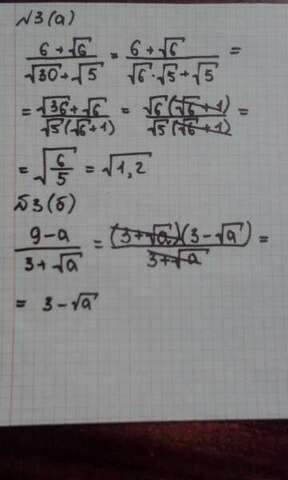 №3(а)
(6+√6)/(√30+√5) = (6+√6)/(√6·√5+√5) =
= (√36+√6)/(√5(√6+1)) = (√6(√6+1))/(√5(√6+1)) =
= √(6/5) = √1,2
№3(б)
(9-a)/(3+√a) = ((3+√a)(3-√a))/(3+√a) =
= 3-√a